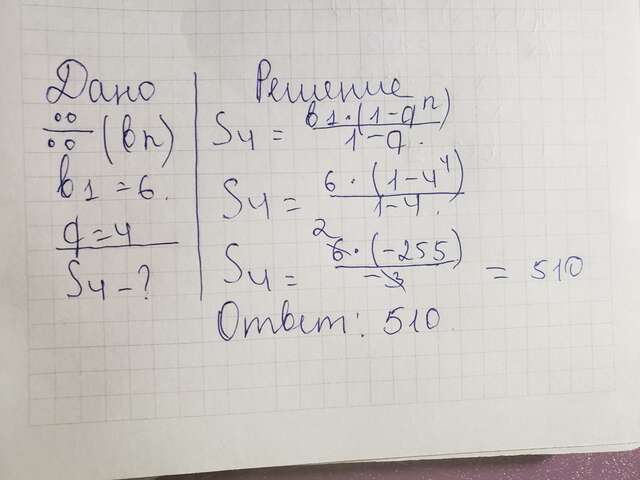 Дано
∺ (bn)
b1 = 6.
q = 4
S4 - ?
Решение
S4 = b1·(1-q^n) / 1-q.
S4 = 6·(1-4^4) / 1-4.
S4 = 2 6·(-255) / -3 = 510
Ответ: 510.